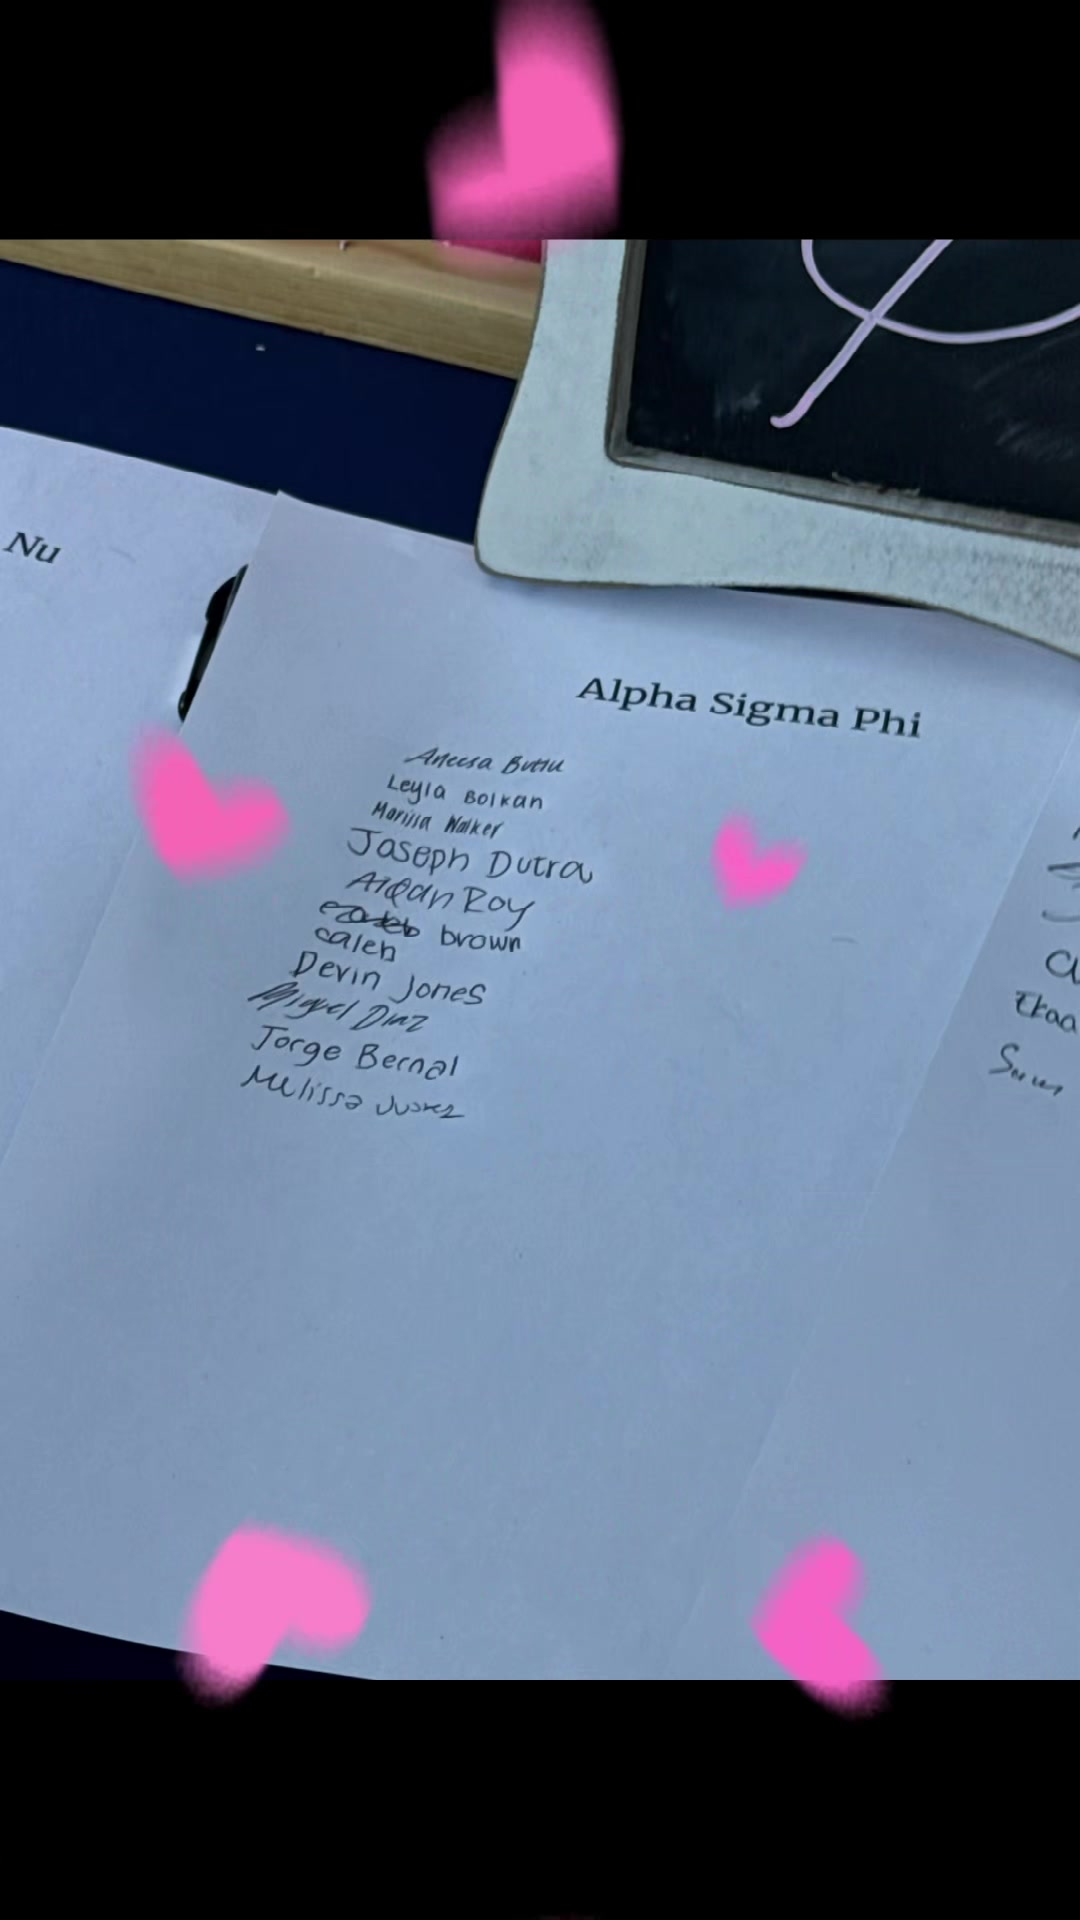 Nu
Alpha Sigma Phi
Aneesa
Leyla Bolkan
Marissa Walker
Joseph Dutra
Aidan Roy
brown
caleb
Devin Jones
Miguel Diaz
Jorge Bernal
Melissa Juarez